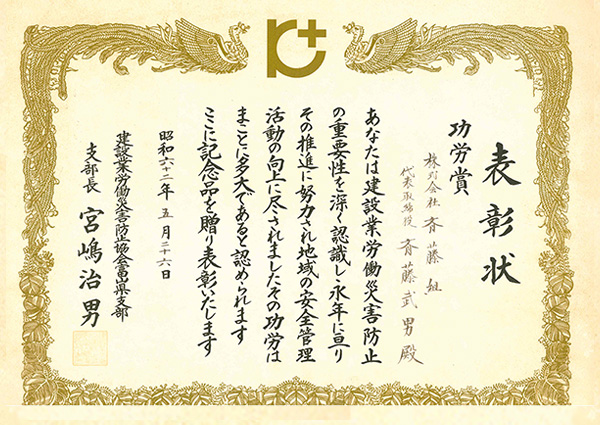 表彰状
功労賞
株式会社 斉藤組
代表取締役 斉藤武男殿
あなたは建設業労働災害防止
の重要性を深く認識し永年に亘り
その推進に努力され地域の安全管理
活動の向上に尽されましたその功労は
まことに多大であると認められます
ここに記念品を贈り表彰いたします
昭和六十二年五月二十六日
建設業労働災害防止協会富山県支部
支部長 宮嶋治男